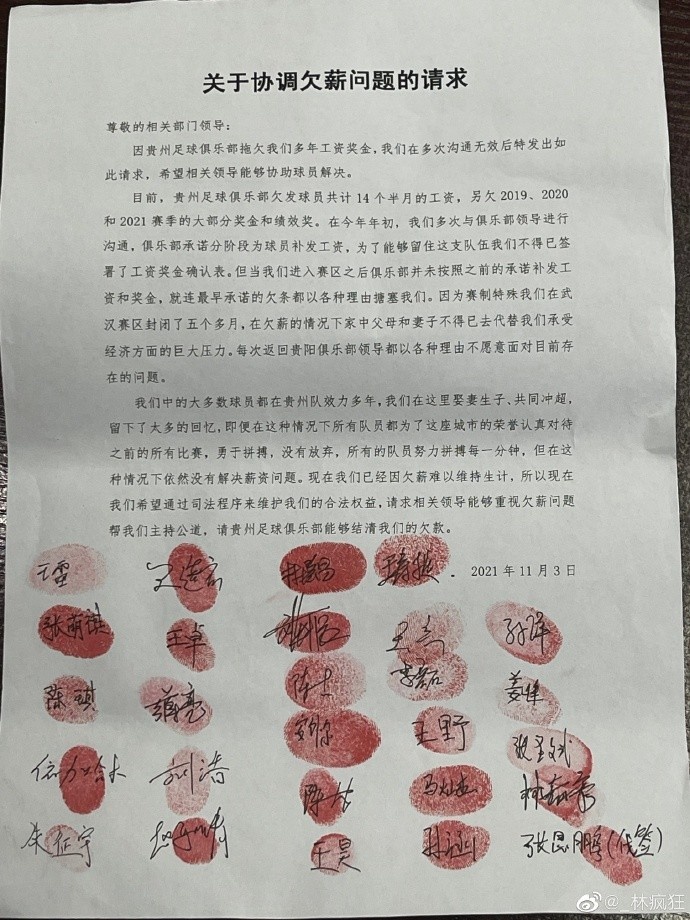 关于协调欠薪问题的请求
尊敬的相关部门领导：
因贵州足球俱乐部拖欠我们多年工资奖金，我们在多次沟通无效后特发出如
此请求，希望相关领导能够协助球员解决。
目前，贵州足球俱乐部欠发球员共计14个半月的工资，另欠2019、2020
和2021赛季的大部分奖金和绩效奖。在今年年初，我们多次与俱乐部领导进行
沟通，俱乐部承诺分阶段为球员补发工资，为了能够留住这支队伍我们不得已签
署了工资奖金确认表。但当我们进入赛区之后俱乐部并未按照之前的承诺补发工
资和奖金，就连最早承诺的欠条都以各种理由搪塞我们。因为赛制特殊我们在武
汉赛区封闭了五个多月，在欠薪的情况下家中父母和妻子不得已去代替我们承受
经济方面的巨大压力。每次返回贵阳俱乐部领导都以各种理由不愿意面对目前存
在的问题。
我们中的大多数球员都在贵州队效力多年，我们在这里娶妻生子、共同冲超，
留下了太多的回忆，即便在这种情况下所有队员都为了这座城市的荣誉认真对待
之前的所有比赛，勇于拼搏，没有放弃，所有的队员努力拼搏每一分钟，但在这
种情况下依然没有解决薪资问题。现在我们已经因欠薪难以维持生计，所以现在
我们希望通过司法程序来维护我们的合法权益，请求相关领导能够重视欠薪问题
帮我们主持公道，请贵州足球俱乐部能够结清我们的欠款。
2021年11月3日
张萌琪 王卓
陈琪
王野
刘涛
朱征宇 王昊 张昆鹏（代签）
@_林疯狂